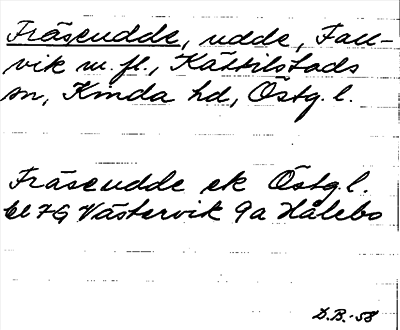 Fräseudde, udde, Fall-
vik m. fl., Kättilstads
sn, Kinda hd, Östg. l.
Fräseudde ek Östg. l.
bl 7G Västervik 9a Hålebo
D.B.-58